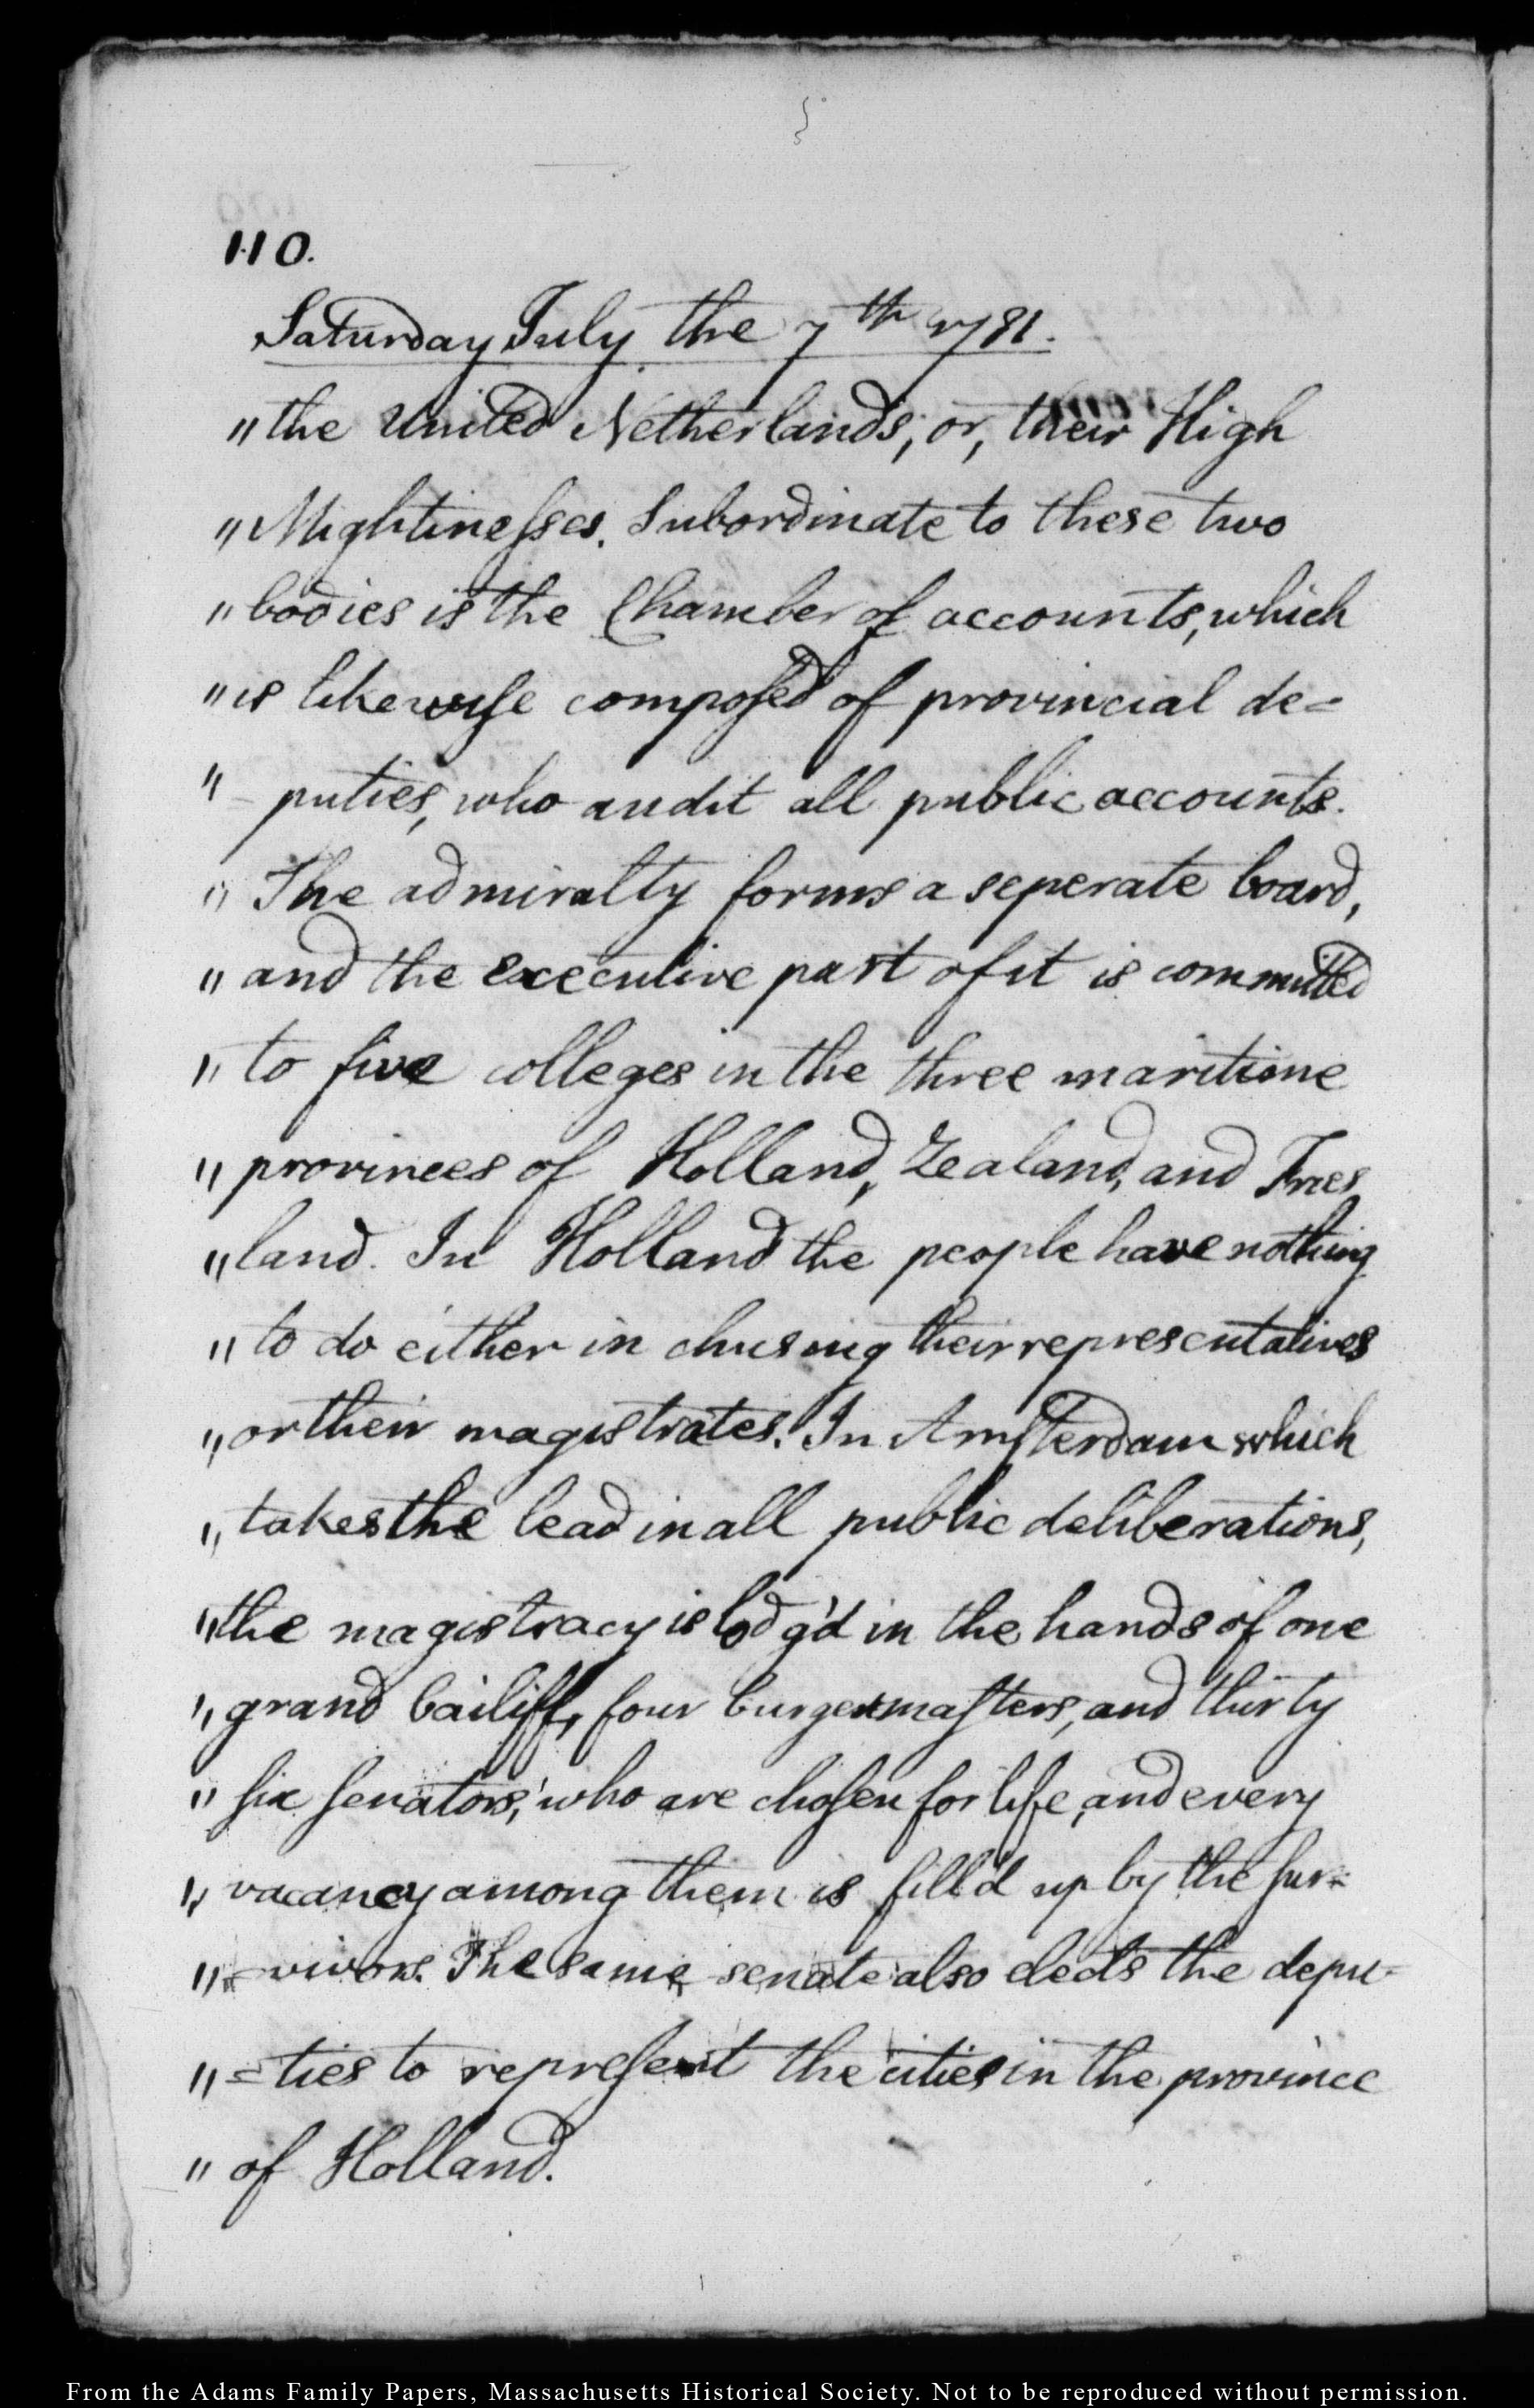 110.
Saturday July the 7th 1781.
"the United Netherlands; or, their High
"Mightinesses. Subordinate to these two
"bodies is the Chamber of accounts, which
"is likewise composed of provincial de=
"-puties, who audit all public accounts.
"The admiralty forms a seperate board,
"and the executive part of it is committed
"to five colleges in the three maritime
"provinces of Holland, Zealand, and Fries
"land. In Holland the people have nothing
"to do either in chusing their representatives
"or their magistrates. In Amsterdam which
"takes the lead in all public deliberations,
"the magistracy is lodg'd in the hands of one
"grand bailiff, four burgermasters, and thirty
"six senators, who are chosen for life, and every
"vacancy among them is fill'd up by the sur=
"=vivors. The same senate also elects the depu-
"=ties to represent the cities in the province
"of Holland.
From the Adams Family Papers, Massachusetts Historical Society. Not to be reproduced without permission.